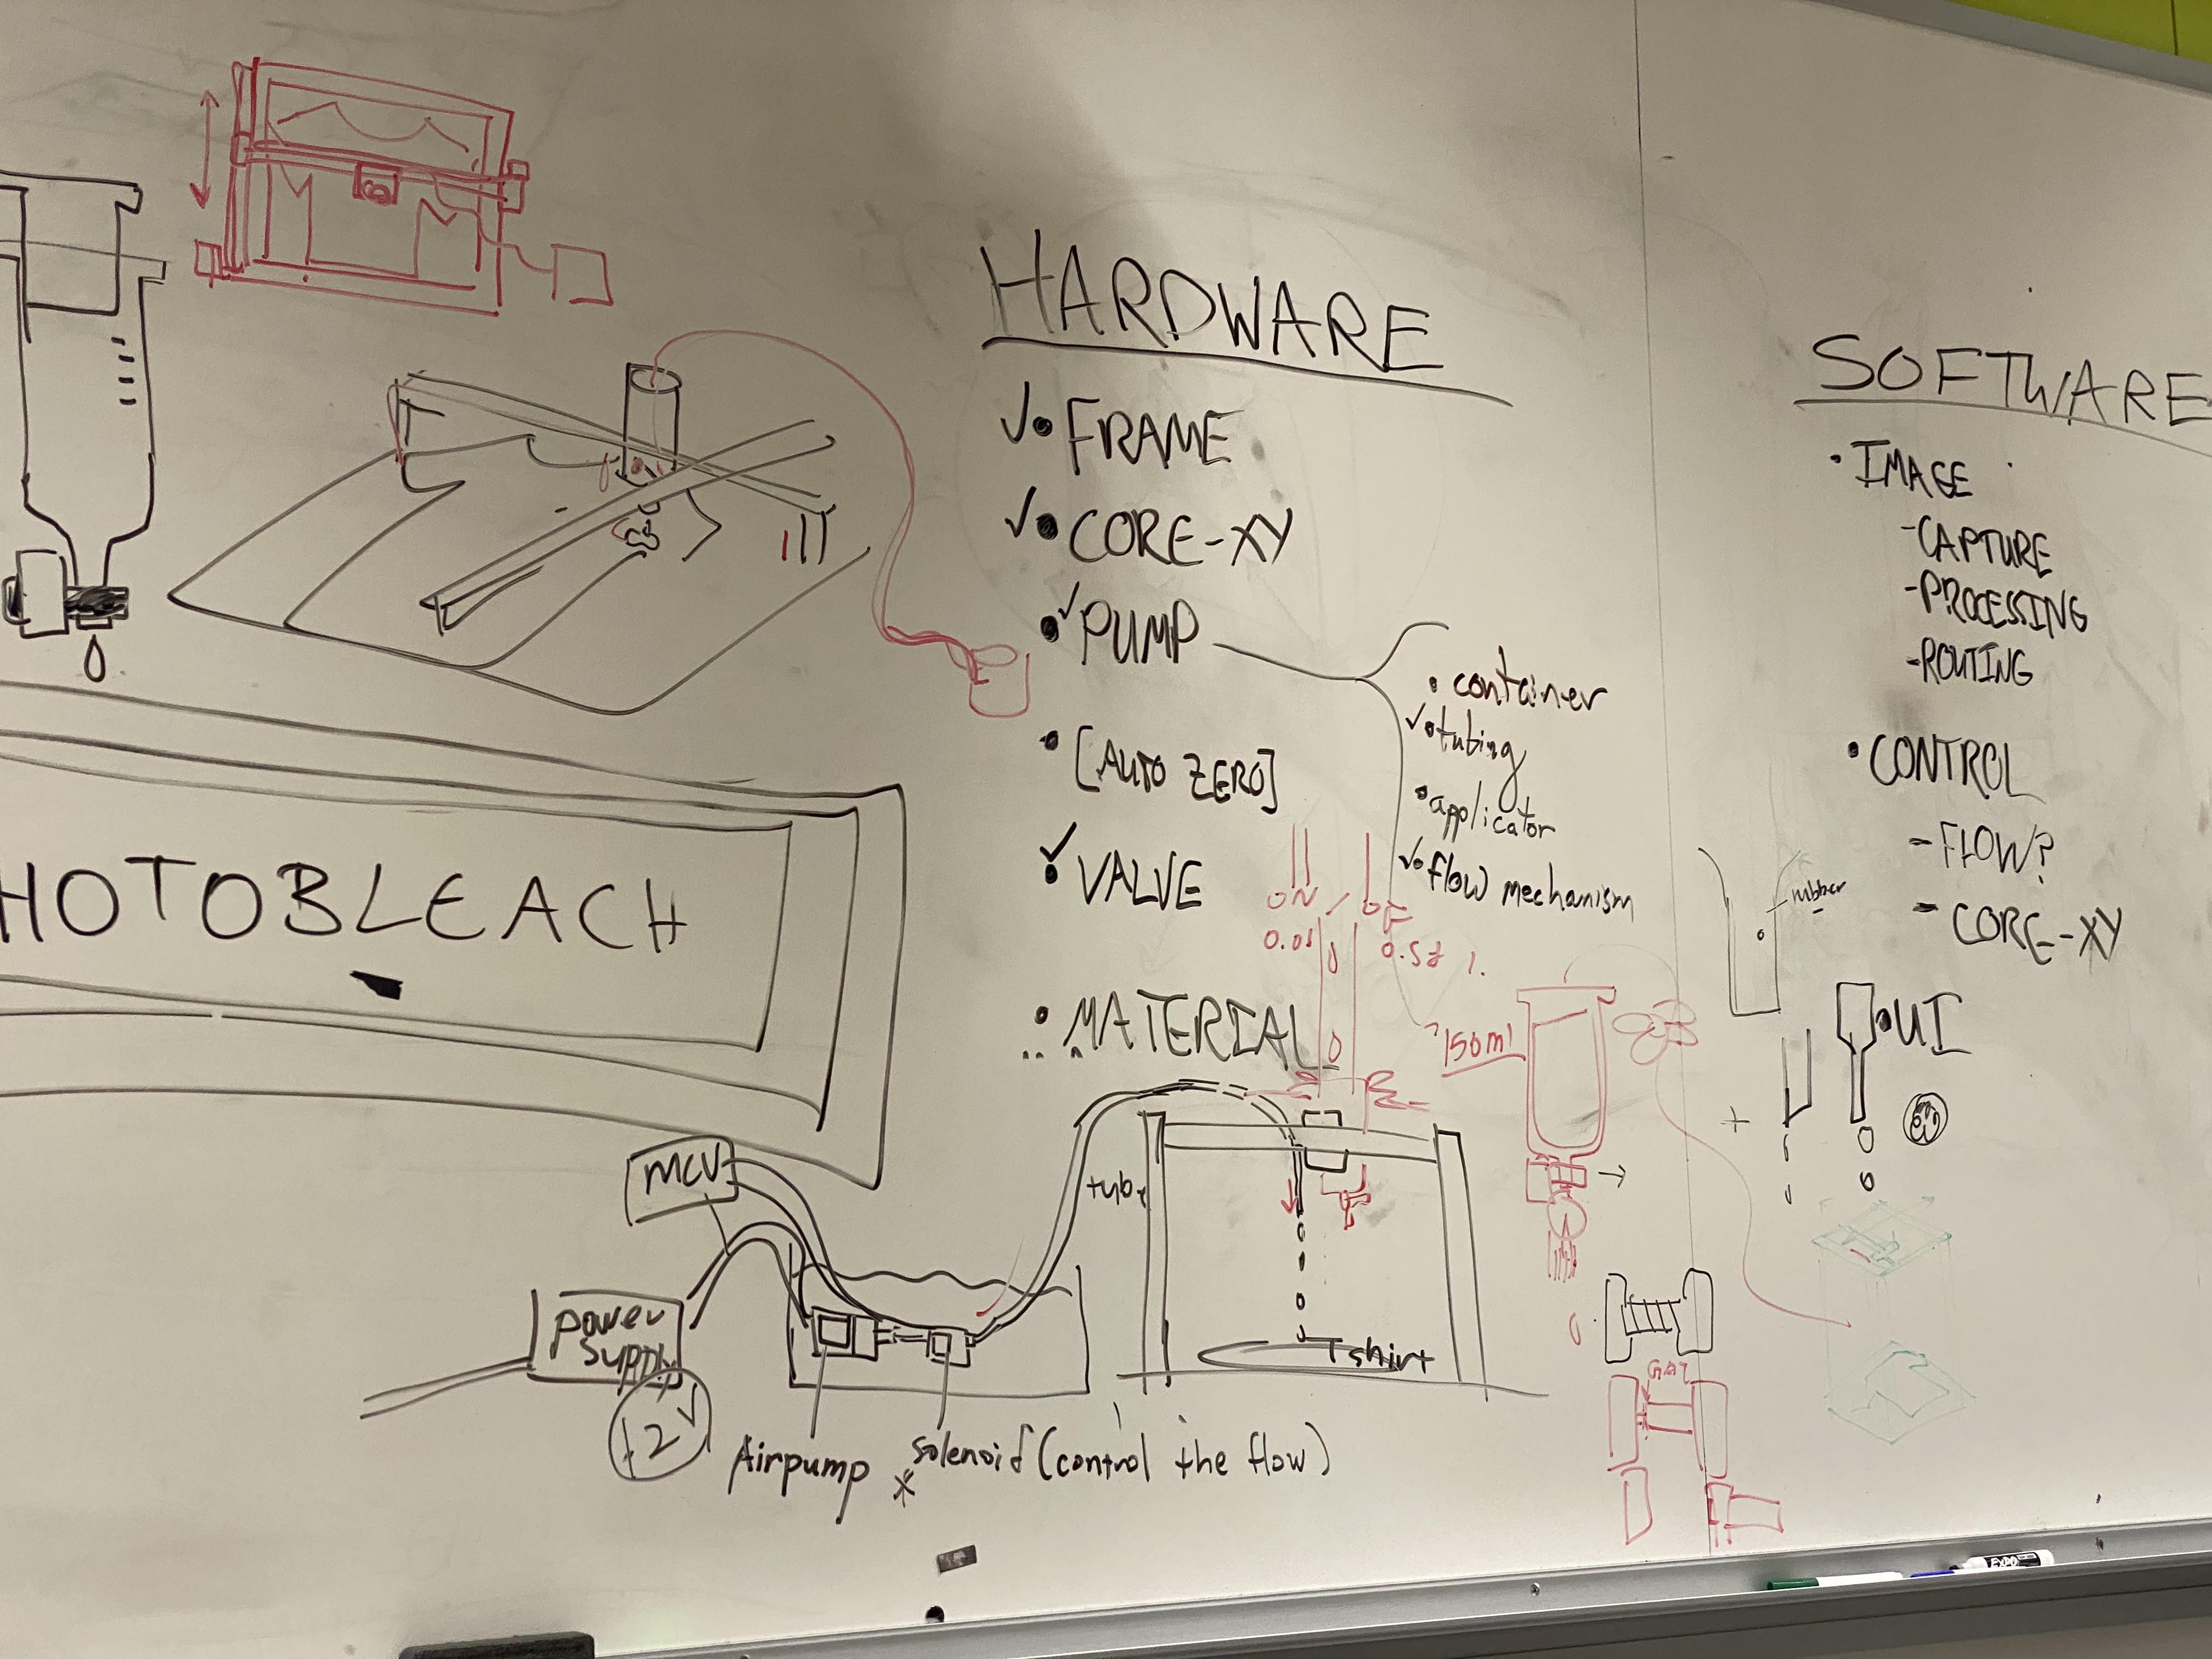 HARDWARE
✓• FRAME
✓• CORE-XY
•✓ PUMP
• container
✓• tubing
• applicator
✓• flow mechanism
• [AUTO ZERO]
✓• VALVE
• MATERIAL
ON / OF
0.01
0.5
150ml
SOFTWARE
• IMAGE
- CAPTURE
- PROCESSING
- ROUTING
• CONTROL
- FLOW?
- CORE-XY
• UI
rubber
HOTOBLEACH
MCU
power
supply
12V
Airpump
* solenoid (control the flow)
tube
Tshirt
EXPO